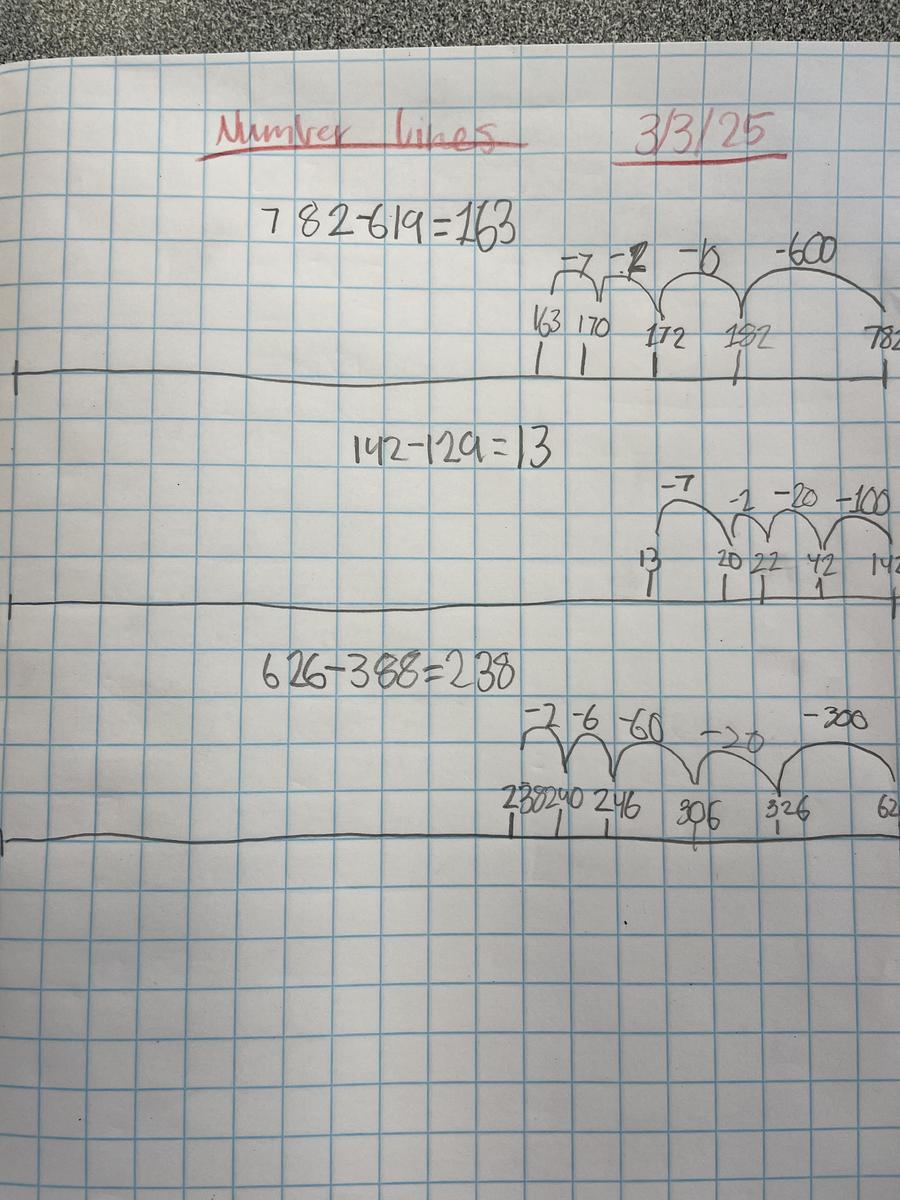 Number Lines 3/3/25
782-619=163
-7 -2 -10 -600
163 170 172 182 782
142-129=13
-7 -2 -20 -100
13 20 22 42 142
626-388=238
-2 -6 -60 -20 -300
238 240 246 306 326 62